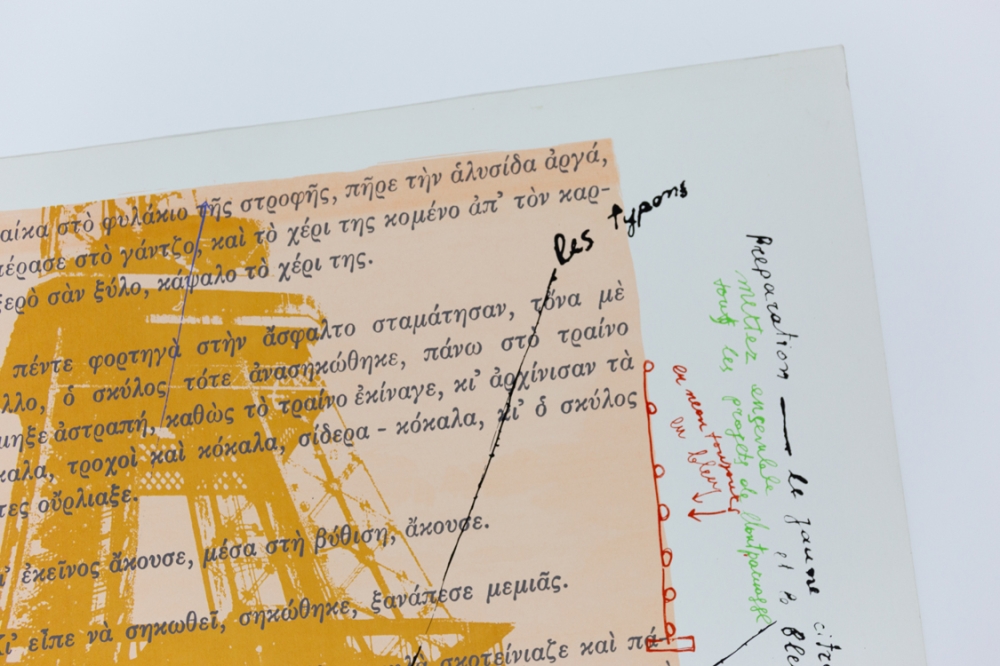 αίκα στὸ φυλάκιο τῆς στροφῆς, πῆρε τὴν ἁλυσίδα ἀργά,
πέρασε στὸ γάντζο, καὶ τὸ χέρι της κομένο ἀπ' τὸν καρ-
ξερὸ σὰν ξύλο, κάψαλο τὸ χέρι της.
πέντε φορτηγὰ στὴν ἄσφαλτο σταμάτησαν, τὄνα μὲ
λλο, ὁ σκύλος τότε ἀνασηκώθηκε, πάνω στὸ τραίνο
μηξε ἀστραπή, καθὼς τὸ τραίνο ἐκίναγε, κι' ἀρχίνισαν τὰ
καλα, τροχοὶ καὶ κόκαλα, σίδερα - κόκαλα, κι' ὁ σκύλος
τες οὔρλιαξε.
ι' ἐκεῖνος ἄκουσε, μέσα στὴ βύθιση, ἄκουσε.
κι' εἶπε νὰ σηκωθεῖ, σηκώθηκε, ξανάπεσε μεμιᾶς.
σκοτείνιαζε καὶ πά-
les typons
Preparation — le jaune
mettez ensemble
tout les projets de Montparnasse
en neon
en bleu